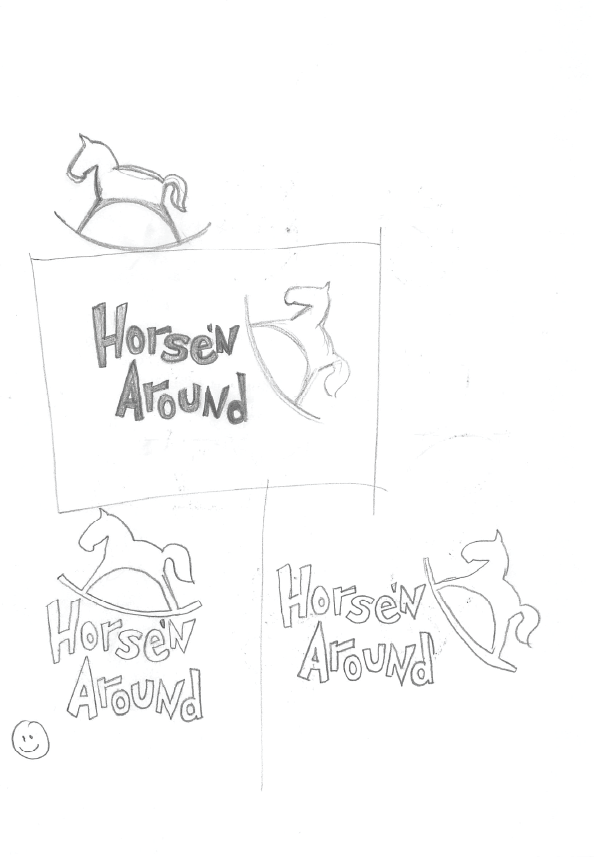 Horse'N
Around
Horse'N
Around
Horse'N
Around